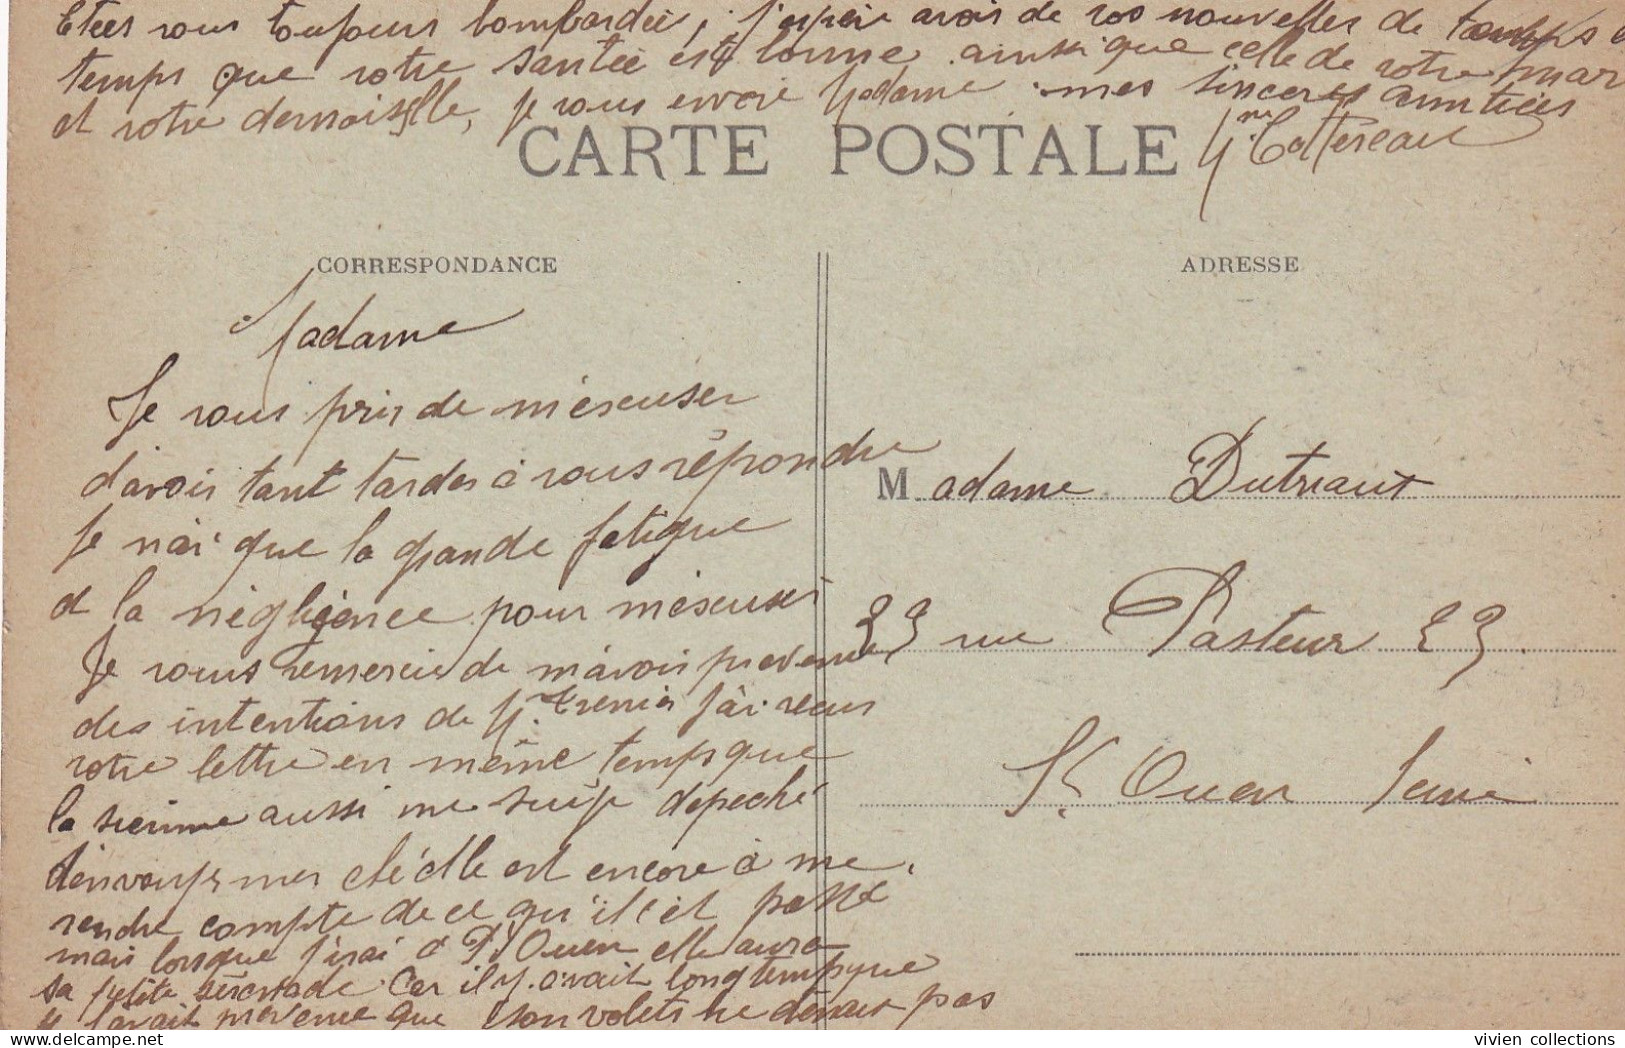 Etees vous toujours bombardée, j'espère avoir de vos nouvelles de temps
temps que votre santée est bonne ainsi que celle de votre mar
et votre demoiselle, je vous envoie Madame mes sinceres amitiées
CARTE POSTALE
CORRESPONDANCE
ADRESSE
Madame
Je vous pris de m'éscuser
d'avoir tant tarder à vous répondre
Je n'ai que la grande fatigue
et la négligence pour m'éscuser
Je vous remercie de m'avoir prevenue
des intentions de M. j'ai recus
votre lettre en même temps que
la sienne aussi me suis je depeché
d'envoyer mes clé elle est encore à me
rendre compte de ce qu'il c'èt passé
mais lorsque j'irai à St Ouen elle aura
sa petite sérénade Car il y avait longtemps que
je l'avait prevenue que son volets ne tenait pas
Madame Dutriaut
23 rue Pasteur 23
St Ouen Seine
vivien collections